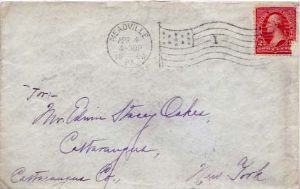 MEADVILLE
APR 4
PA.
1
2
For:-
Mr. Edwin Stacey Oakes,
Cattaraugus,
Cattaraugus Co.,
New York